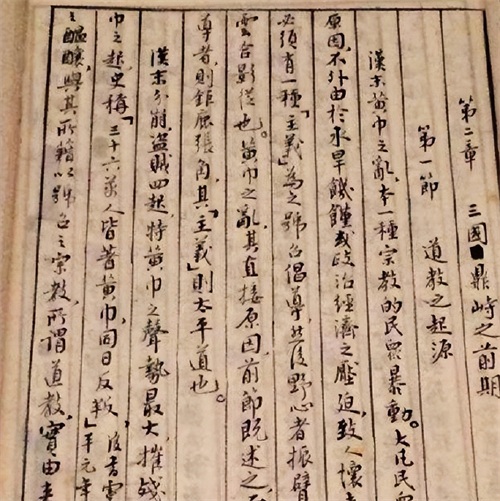 第二章　三國鼎峙之前期
第一節　道教之起源
漢末黃巾之亂，本一種宗教的民眾暴動。大凡民眾
原因，不外由於水旱饑饉或政治經濟之壓迫，致人懷
必須有一種「主義」為之號召倡導，然後野心者振臂
雲合影從也。黃巾之亂，其直接原因，前節既述之
導者，則鉅鹿張角，其「主義」則太平道也。
漢末分崩，盜賊四起，特黃巾之聲勢最大，摧殘
巾之起，史稱「三十六萬人皆著黃巾，同日反叛，」
之醞釀，與其所藉以號召之宗教，所謂道教，實由